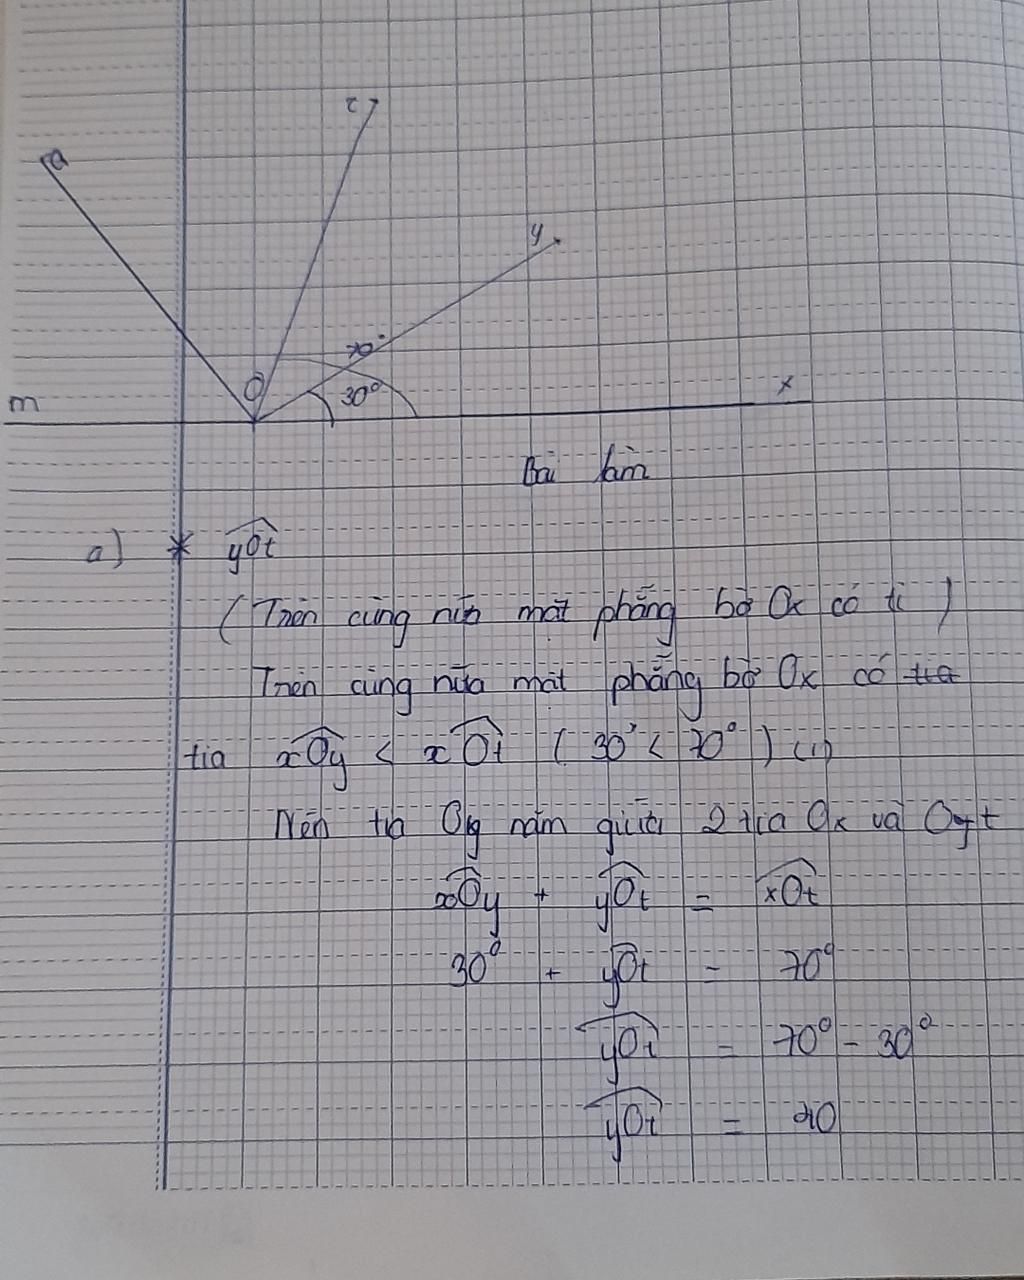 t
a
y
70°
O
30°
x
m
Bài làm
a) * yOt
( Trên cùng nửa mặt phẳng bờ Ox có ti )
Trên cùng nửa mặt phẳng bờ Ox có tia
tia xOy < xOt ( 30° < 70° ) (1)
Nên tia Oy nằm giữa 2 tia Ox và Ot
xOy + yOt = xOt
30° + yOt = 70°
yOt = 70° - 30°
yOt = 40